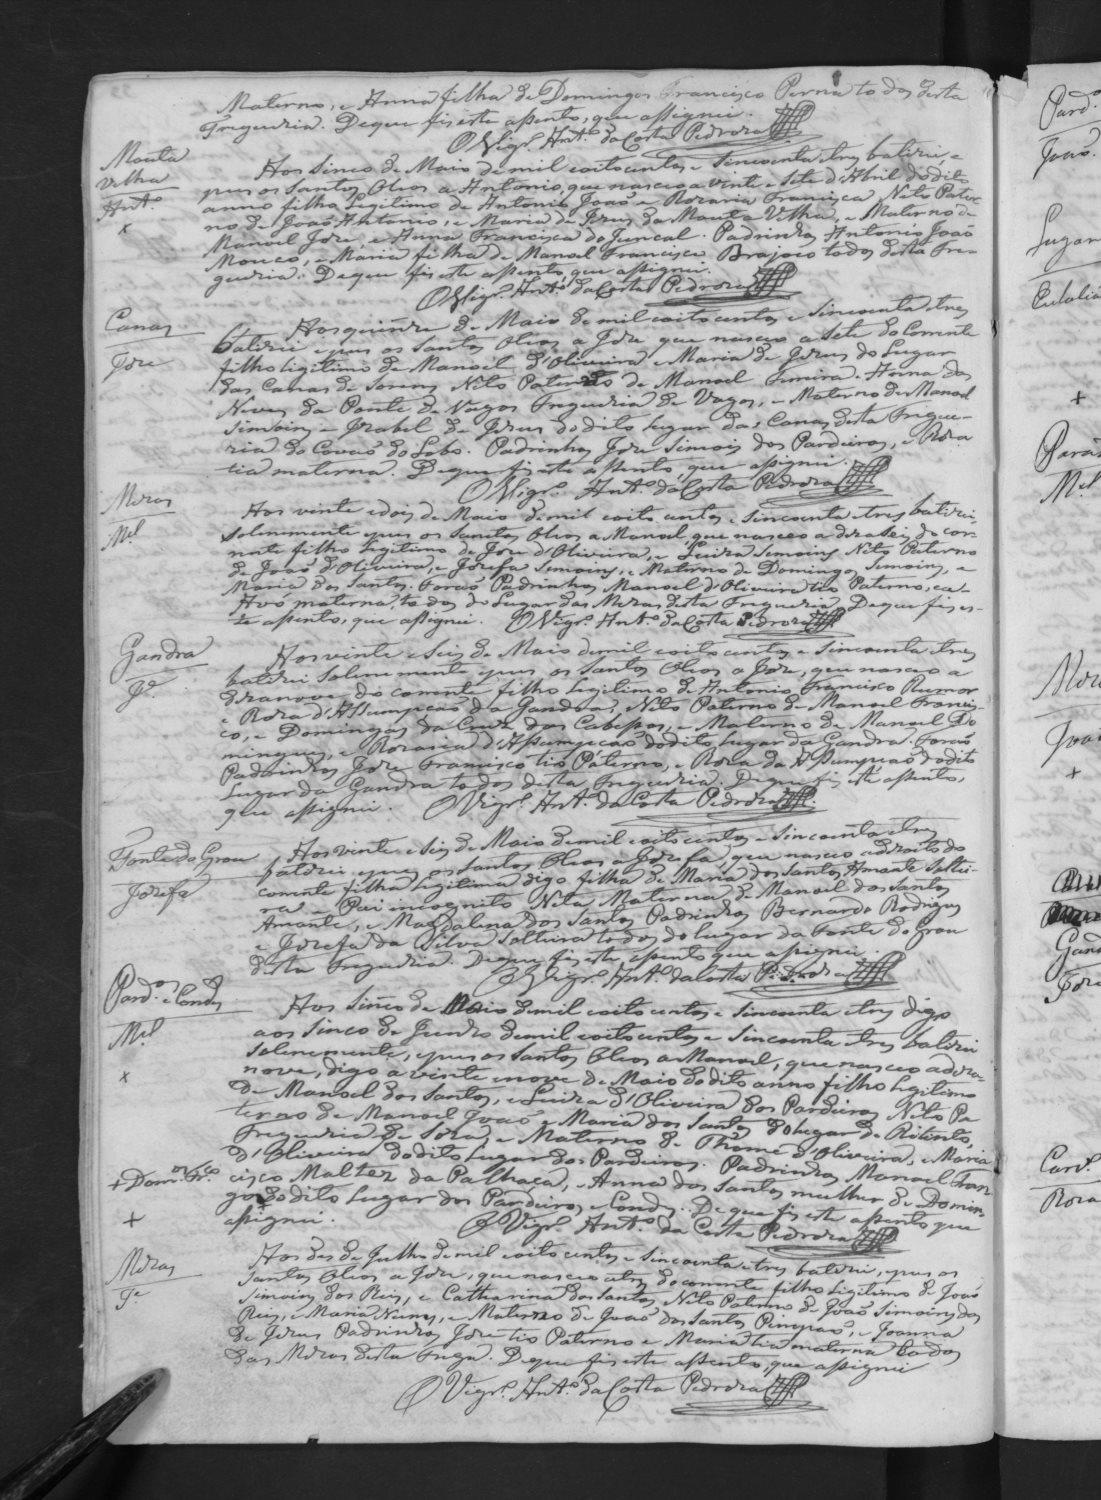 Materno, e Anna filha de Domingos Francisco Pernato dos desta
Freguezia. De que fiz este assento, que assignei.
O Vigr.º Ant.º da Costa Pedroza
Mouta
Velha
Ant.º
Aos sinco de Maio de mil eoito centos e sincoenta e tres batizei, e
pus os Santos Oleos a Antonio, que nasceo a vinte e sete d'Abril do dito
anno filho legitimo de Antonio João e Rozaria Francisca Neto Pater-
no de João Antonio, e Maria de Jezus da Mouta Velha, e Materno de
Manoel Joze, e Anna Francisca do Juncal. Padrinhos Antonio João
Mouco, e Maria filha de Manoel Francisco Brajoeo todos desta Fre-
guezia. De que fiz este assento, que assignei.
O Vigr.º Ant.º da Costa Pedroza
Canas
Joze
Aos quinze de Maio de mil eoito centos e sincoenta e tres
batizei e pus os Santos Oleos a Joze que nasceo a sete do Corrente
filho legitimo de Manoel d'Oliveira e Maria de Jezus do Lugar
das Canas de Neto Paterno de Manoel Ferreira Anna das
Neves da Ponte de Vagos Freguezia de Vagos, e Materno de Manoel
Simois e Izabel de Jezus do dito Lugar das Canas desta Fregue-
ria do Covaõ do Lobo. Padrinhos Joze Simois dos Pardeiros, e Roza
tia materna. De que fiz este assento, que assignei.
O Vigr.º Ant.º da Costa Pedroza
Mezas
M.el
Aos vinte e dois de Maio de mil eoito centos e sincoenta e tres batizei
solenemente e pus os Santos Oleos a Manoel, que nasceo a dezaseis do cor-
rente filho legitimo de Joze d'Oliveira, e Luiza Simoins Neto Paterno
de João d'Oliveira, e Jozefa Simoins, e Materno de Domingos Simoins, e
Maria dos Santos. Foraõ Padrinhos Manoel d'Oliveira tio Paterno, e a
Avó materna, todos do Lugar das Mezas desta Freguezia De que fiz es-
te assento, que assignei. O Vigr.º Ant.º da Costa Pedroza
Gandra
J.e
Aos vinte e seis de Maio de mil eoito centos e sincoenta e tres
batizei solenemente e pus os Santos Oleos a Joze, que nasceo a
dezanove do corrente filho legitimo de Antonio Francisco Rumor
e Roza d'Assumpcaõ da Gandra, Neto Paterno de Manoel Francis-
co, e Domingas da Cruz das Cabessas, e Materno de Manoel Do
mingues, e Rozaria d'Assumpcaõ do dito Lugar da Gandra. Foraõ
Padrinhos Joze Francisco tio Paterno, e Roza da Assumpcaõ do dito
Lugar da Gandra todos desta Freguezia. De que fiz este assento,
que assignei. O Vigr.º Ant.º da Costa Pedroza
Fonte do Grou
Jozefa
Aos vinte e seis de Maio de mil eoito centos e sincoenta e tres
batizei e pus os santos Oleos a Jozefa, que nasceo a dezoito do
corrente filha legitima digo filha de Maria dos Santos Amante Soltei-
ra e Pai incognito Neta Materna de Manoel dos Santos
Amante, e Magdalena dos Santos Padrinhos Bernardo Rodrigues
e Jozefa da Silva Solteira todos do Lugar da Fonte do Grou
desta Freguezia. De que fiz este assento que assignei
O Vigr.º Ant.º da Costa Pedroza
Pard.os e Condes
M.el
Aos sinco de Maio de mil eoito centos e sincoenta e tres digo
aos sinco de Junho de mil eoito centos e sincoenta e tres batizei
solenemente, e pus os Santos Oleos a Manoel, que nasceo a deza-
nove, digo a vinte e nove de Maio do dito anno filho legitimo
de Manoel dos Santos, e Luiza d'Oliveira dos Pardeiros Neto Pa
terno de Manoel João e Maria dos Santos do Lugar de Ritonto
Freguezia de Soza, e Materno de Thomé d'Oliveira, e Maria
d'Oliveira do dito Lugar dos Pardeiros. Padrinhos Manoel Fran-
+ Dom.os Fr.co
cisco Maltez da Palhaça, e Anna dos Santos mulher de Domin-
gos do dito Lugar dos Pardeiros e Condes. De que fiz este assento que
assignei. O Vigr.º Ant.º da Costa Pedroza
Mezas
J.e
Aos des de Julho de mil eoito centos e sincoenta e tres batizei, e pus os
Santos Oleos a Joze, que nasceo a tres do corrente filho legitimo de João
Simoins dos Reis, e Catharina dos Santos, Neto Paterno de João Simoins dos
Reis, e Maria Nunes, e Materno de João dos Santos, e Joanna
de Jezus Padrinhos Joze tio Paterno e Maria tia materna todos
das Mezas desta Freg.a. De que fiz este assento, que assignei
O Vigr.º Ant.º da Costa Pedroza
Pard.o
João
Lugar
Eulalia
M.el
Roza